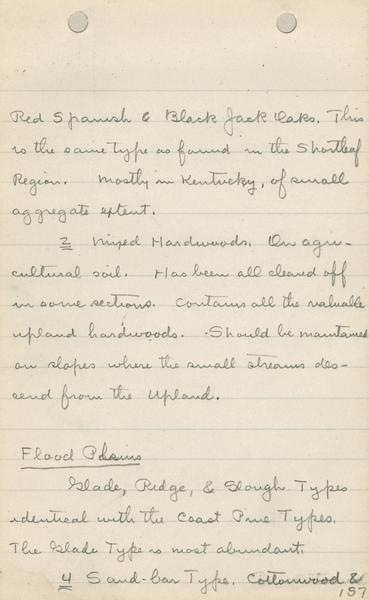 Red Spanish & Black Jack Oaks. This
is the same type as found in the Shortleaf
Region. Mostly in Kentucky, of small
aggregate extent.
2 Mixed Hardwoods. On agri-
cultural soil. Has been all cleared off
in some sections. Contains all the valuable
upland hardwoods. Should be maintained
on slopes where the small streams des-
cend from the Upland.
Flood Plains
Glade, Ridge, & Slough Types
identical with the Coast Pine Types.
The Glade Type is most abundant.
4 Sand-bar Type. Cottonwood &
157